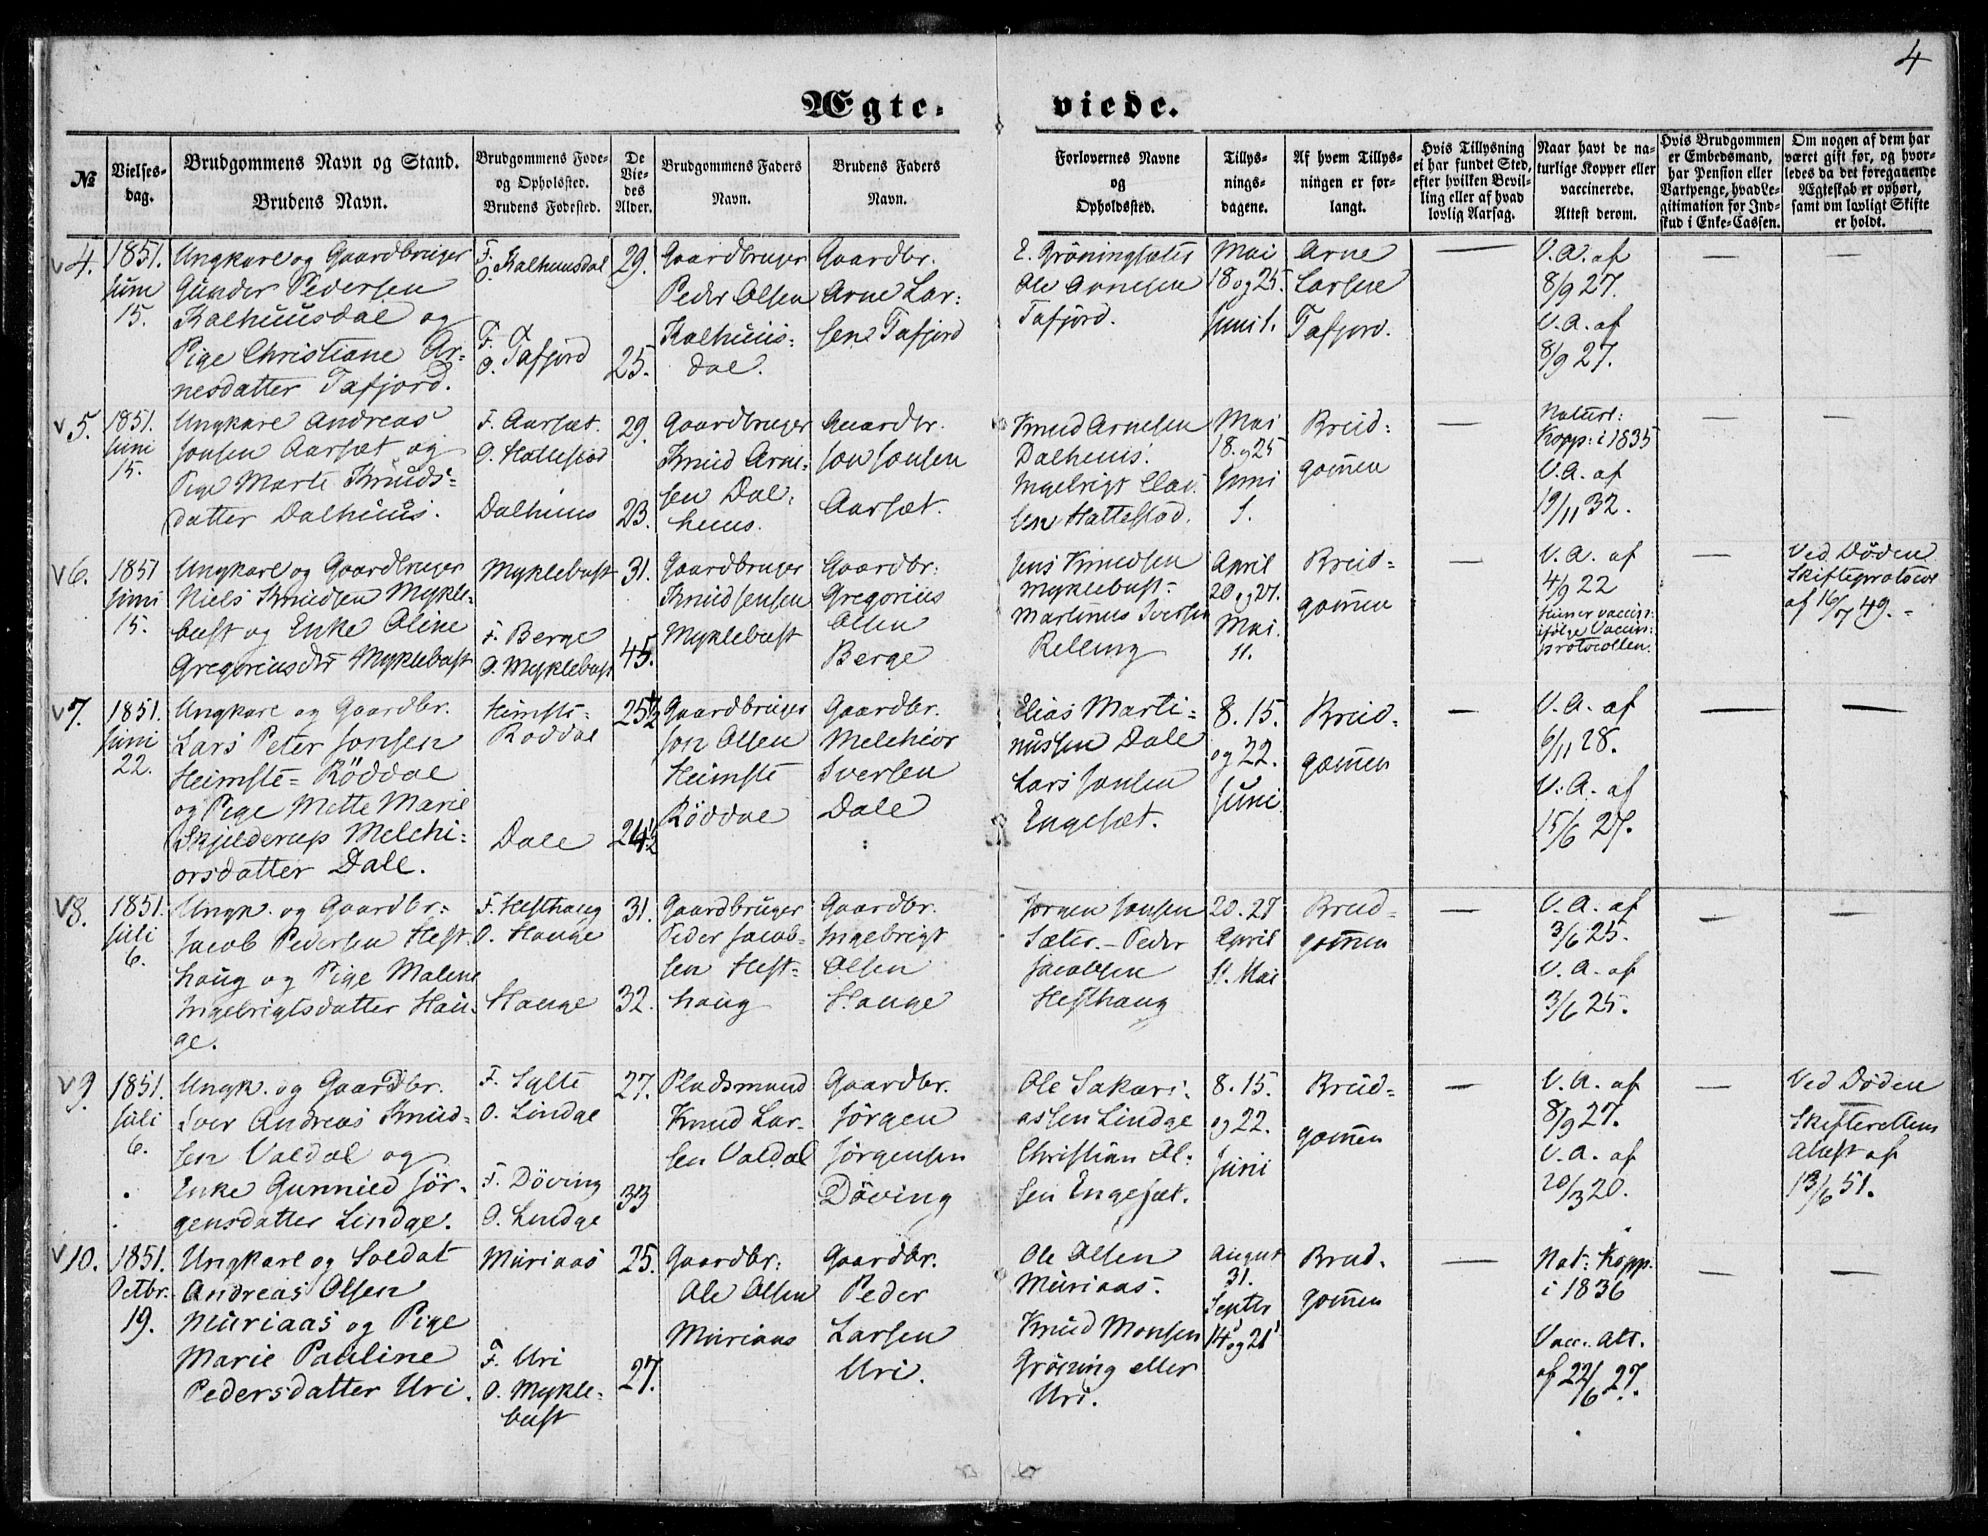 4
Ægte- viede.
№
Vielses-
dag.
Brudgommens Navn og Stand.
Brudens Navn.
Brudgommens Føde-
og Opholdssted.
Brudens Fødested.
De
Vie-
des
Alder.
Brudgommens Faders
Navn.
Brudens Faders
Navn.
Forlovernes Navne
og
Opholdssted.
Tillys-
nings-
dagene.
Af hvem Tillys-
ningen er for-
langt.
Hvis Tillysning
ei har fundet Sted,
efter hvilken Bevil-
ling eller af hvad
lovlig Aarsag.
Naar havt de na-
turlige Kopper eller
vaccinerede.
Attest derom.
Hvis Brudgommen
er Embedsmand,
har Pension eller
Vartpenge, hvad Le-
gitimation for Ind-
skud i Enke-Cassen.
Om nogen af dem har
været gift før, og hvor-
ledes da det foregaaende
Ægteskab er ophørt,
samt om lovligt Skifte
er holdt.
v 4.
1851.
Juni
15.
Ungkarl og Gaardbruger
Gunder Pedersen
Kalhuusdal og
Pige Christiane Ar-
nesdatter Tafjord.
F.
O. Kalhuusdal
F.
O. Tafjord
29.
25.
Gaardbruger
Peder Olsen
Kalhuus-
dal.
Gaardbr.
Arne Lar-
sen Tafjord
E. Gröningsæter
Ole Arnesen
Tafjord.
Mai
18 og 25.
Juni 1.
Arne
Larsen
Tafjord.
V. A. af
8/9 27.
V. A. af
8/9 27.
v 5.
1851.
Juni
15.
Ungkarl Andreas
Jonsen Aarsæt og
Pige Marte Knuds-
datter Dalhuus.
F. Aarsæt.
O. Hattestöd
Dalhuus
29.
23.
Gaardbruger
Knud Arne-
sen Dal-
huus.
Gaardbr.
Jon Jonsen
Aarsæt.
Knud Arnesen
Dalhuus.
Ingebrigt Elia-
sen Hattestöd.
Mai
18. og 25
Juni
1.
Brud-
gommen
Naturl:
Kopp: i 1835
V. A. af
19/11 32.
v 6.
1851
Juni
15.
Ungkarl og Gaardbruger
Niels Knudsen Mykle-
bust og Enke Oline
Gregoriusdtr Myklebust
Myklebust
F. Berge
O. Myklebust
31.
45.
Gaardbruger
Knud Jensen
Myklebust
Gaardbr:
Gregorius
Olsen
Berge
Jens Knudsen
Myklebust-
Martinus Iversen
Relling
April
20 og 27.
Mai.
11.
Brud-
gommen
V. A. af
4/9 22
Hun er vaccin:
ifølge Vaccin:
protocollen.
Ved Døden
Skifteprotocol
af 16/7 49. -
v 7.
1851.
Juni
22.
Ungkarl og Gaardbr.
Lars Peter Jonsen
Heimste- Röddal
og Pige Mette Marie
Skjelderup Melchi-
orsdatter Dale.
Heimste-
Röddal
Dale
25 1/2
24 1/2
Gaardbruger
Jon Olsen
Heimste
Röddal
Gaardbr.
Melchior
Iversen
Dale
Elias Marti-
nussen Dale
Lars Jonsen
Engesæt.
8. 15.
og 22.
Juni
Brud-
gommen
V. A. af
6/11 28.
V. A. af
15/6 27.
v 8.
1851.
Juli
6.
Ungk. og Gaardbr.
Jacob Pedersen Hest-
haug og Pige Malene
Ingebrigtsdatter Hau-
ge.
F. Hesthaug
O. Hauge
Hauge
31.
32.
Gaardbruger
Peder Jacob-
sen Hest-
haug
Gaardbr.
Ingebrigt
Olsen
Hauge
Jörgen Jonsen
Sæter. - Peder
Jacobsen
Hesthaug
20. 27
April
11. Mai
Brud-
gommen
V. A. af
3/6 25.
V. A. af
3/6 25.
v 9.
1851.
Juli
6.
Ungk. og Gaardbr.
Iver Andreas Knud-
sen Valdal og
Enke Gunnild Jör-
gensdatter Lindge.
F. Sylte
O. Lindge
F. Döving
O. Lindge
27.
33
Pladsmand
Knud Lar-
sen Valdal
Gaardbr.
Jörgen
Jörgensen
Döving
Ole Sakari-
assen Lindge
Christian Ol-
sen Engesæt.
8. 15.
og 22.
Juni
Brud-
gommen
V. A. af
8/9 27.
V. A. af
20/3 20.
Ved Døden
Skifterettens
Attest af
13/6 51.
v 10.
1851.
Octbr.
19.
Ungkarl og Soldat
Andreas Olsen
Muriaas og Pige
Marie Pauline
Pedersdatter Uri.
Muriaas
F. Uri
O. Mykle-
bust
25.
27.
Gaardbr:
Ole Olsen
Muriaas
Gaardbr.
Peder
Larsen
Uri.
Ole Olsen
Muriaas.
Knud Monsen
Gröning eller
Uri.
August
31.
Septer
14 og 21
Brud-
gommen
Nat: Kopp:
i 1836
Vacc. Att.
af 22/6 27.